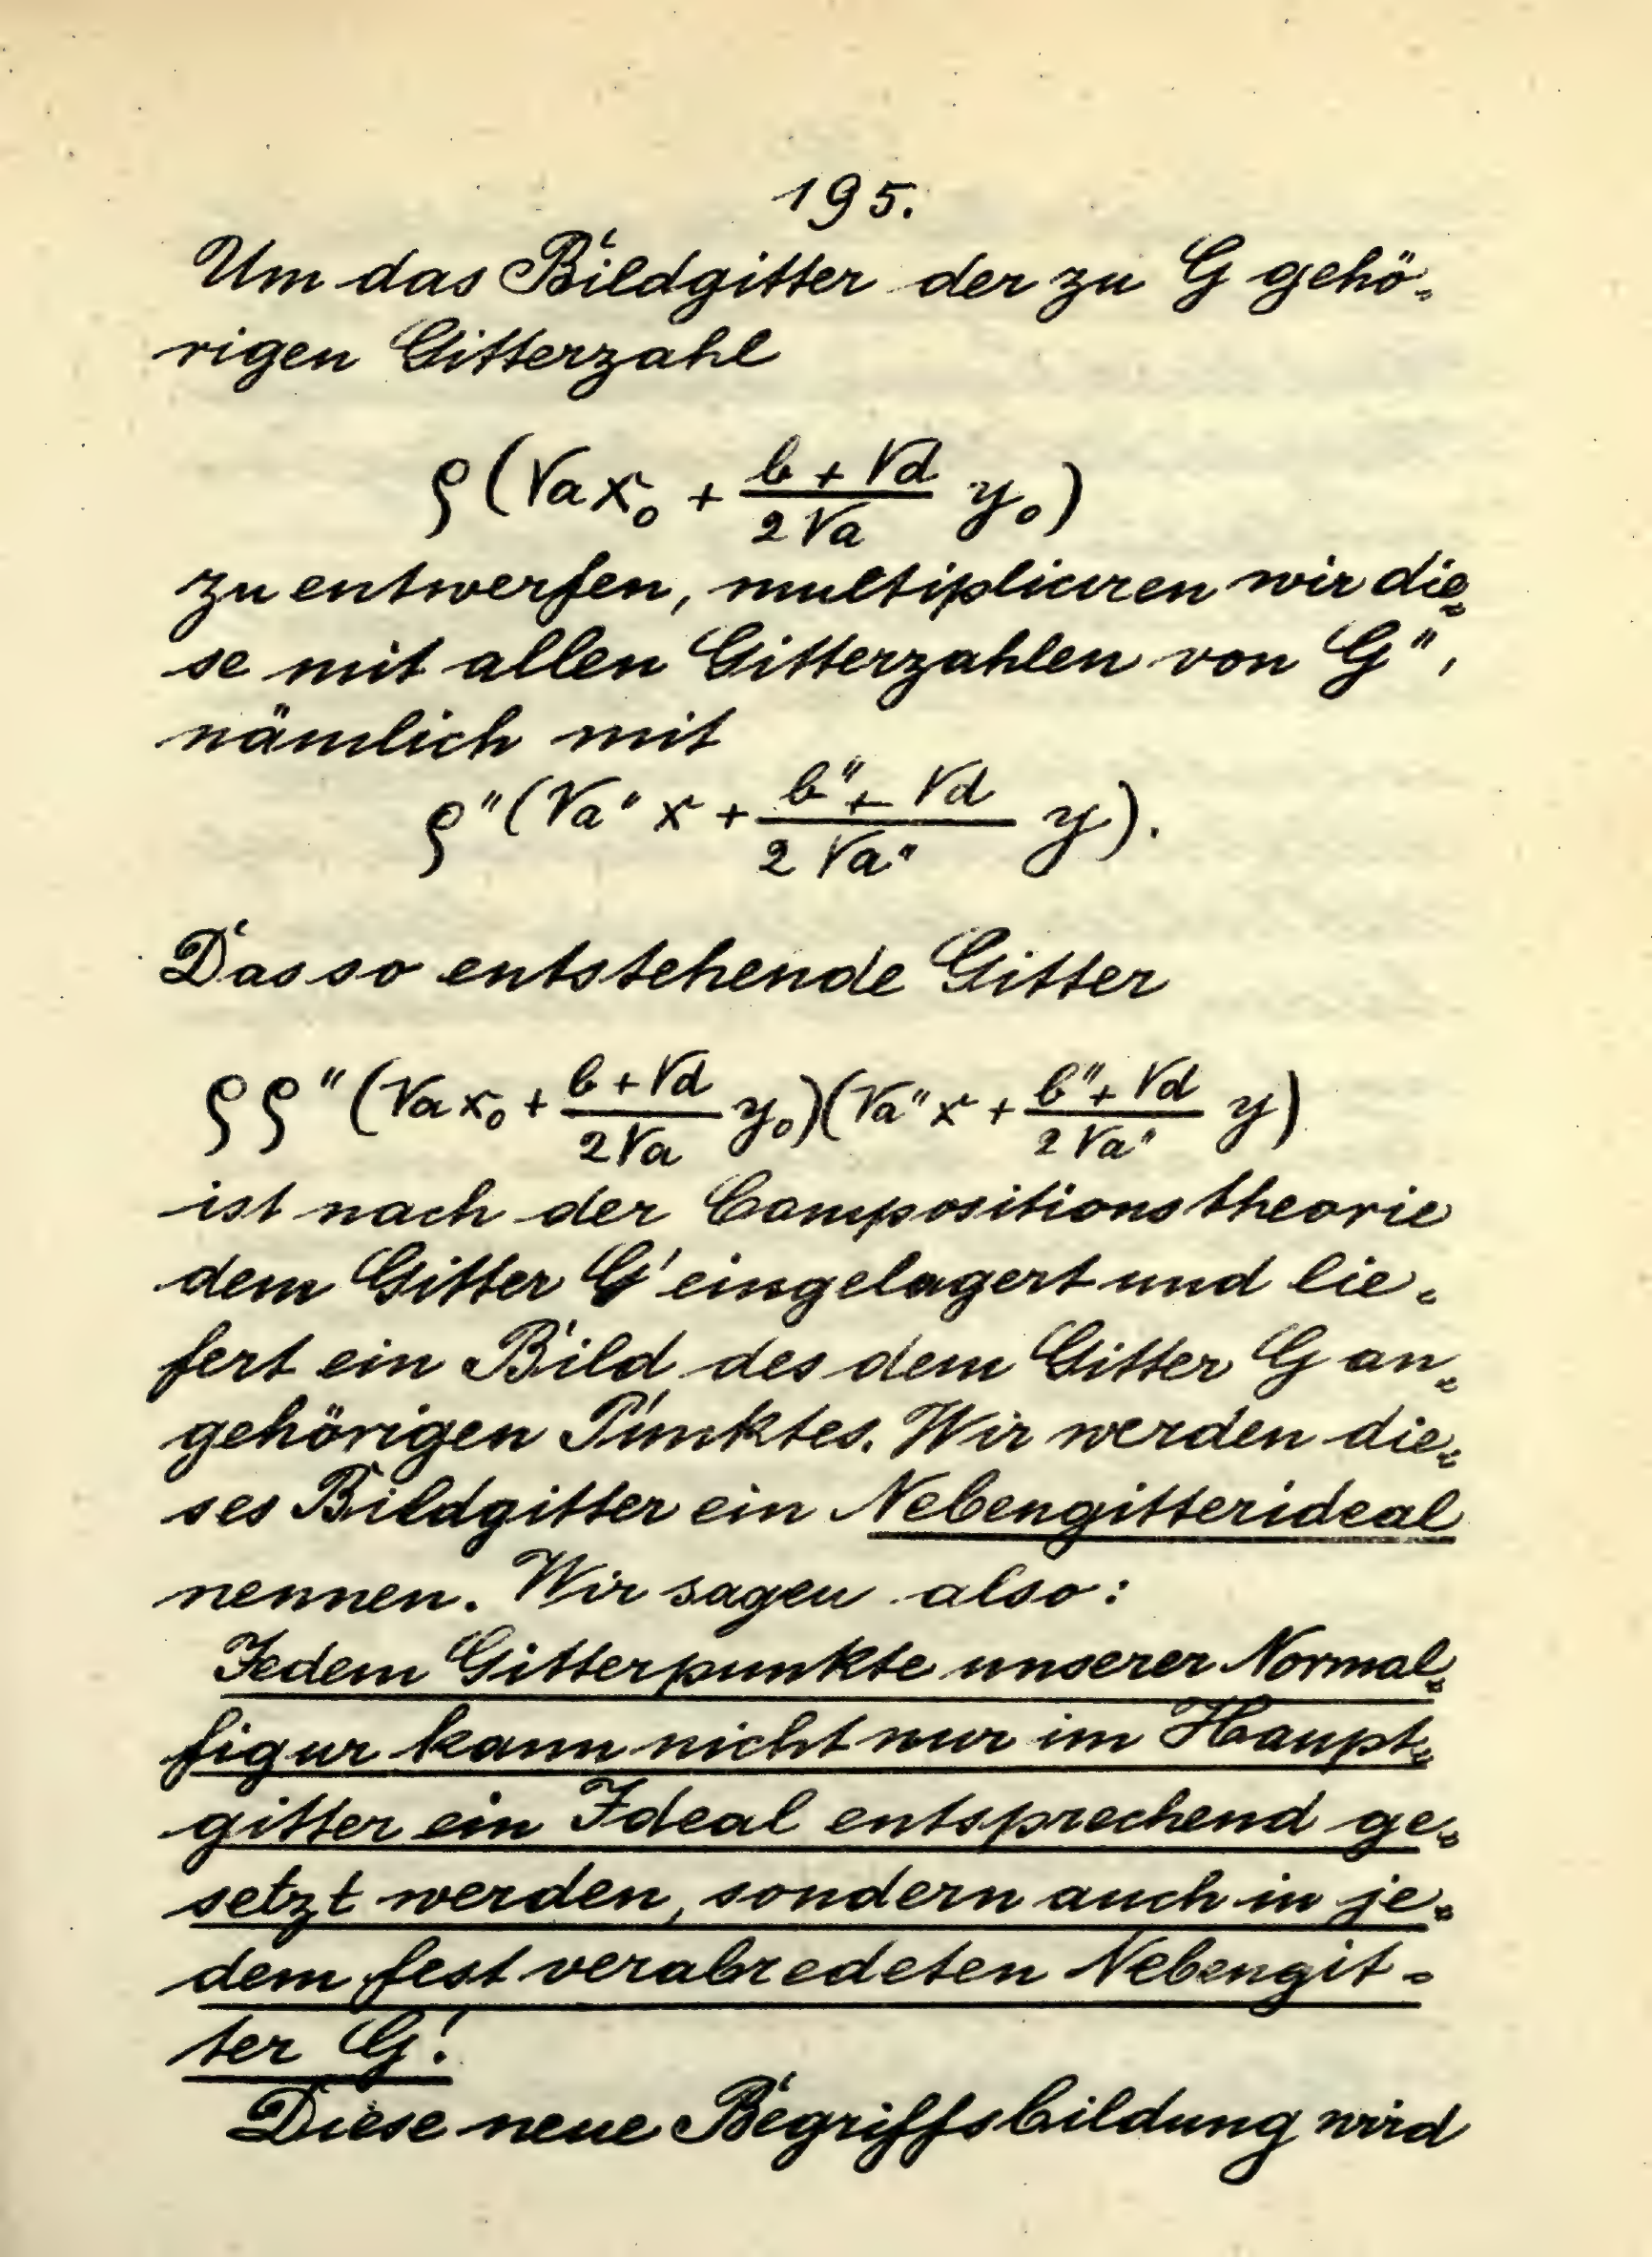 195.
Um das Bildgitter der zu G gehö-
rigen Gitterzahl
ρ(√a x₀ + (b + √d)/(2√a) y₀)
zu entwerfen, multipliciren wir die-
se mit allen Gitterzahlen von G",
nämlich mit
ρ"(√a" x + (b" + √d)/(2√a") y).
Das so entstehende Gitter
ρρ"(√a x₀ + (b + √d)/(2√a) y₀)(√a" x + (b" + √d)/(2√a") y)
ist nach der Compositionstheorie
dem Gitter G' eingelagert und lie-
fert ein Bild des dem Gitter G an-
gehörigen Punktes. Wir werden die-
ses Bildgitter ein Nebengitterideal
nennen. Wir sagen also:
Jedem Gitterpunkte unserer Normal-
figur kann nicht nur im Haupt-
gitter ein Ideal entsprechend ge-
setzt werden, sondern auch in je-
dem fest verabredeten Nebengit-
ter G'.
Diese neue Begriffsbildung wird